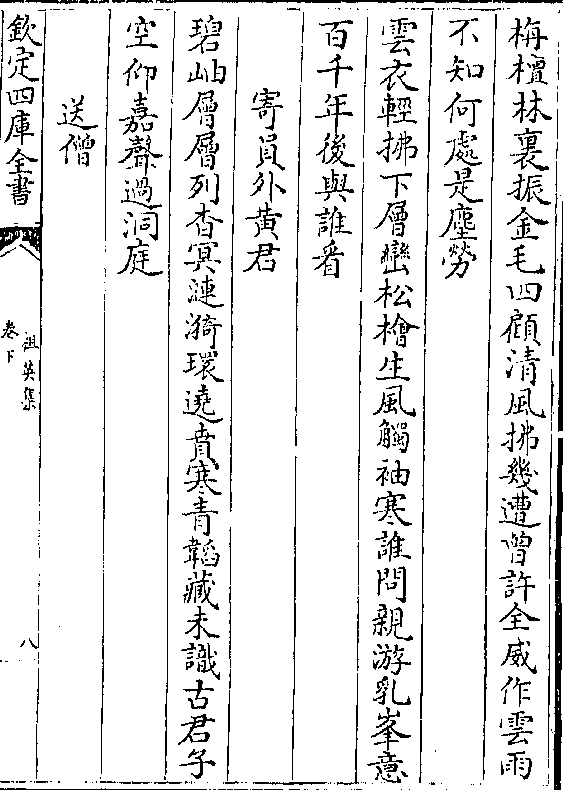 栴檀林裏振金毛四顧清風拂幾遭曾許全威作雲雨
不知何處是塵勞
雲衣輕拂下層巒松檜生風觸袖寒誰問親游乳峯意
百千年後與誰看
寄員外黄君
碧岫層層列杳冥漣漪環遶賁寒青韜藏未識古君子
空仰嘉聲過洞庭
送僧
欽定四庫全書
祖英集
卷下
八